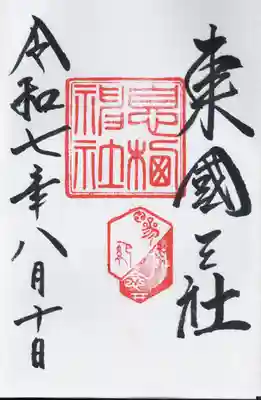 東國三社
息栖
神社
令和七年八月十日